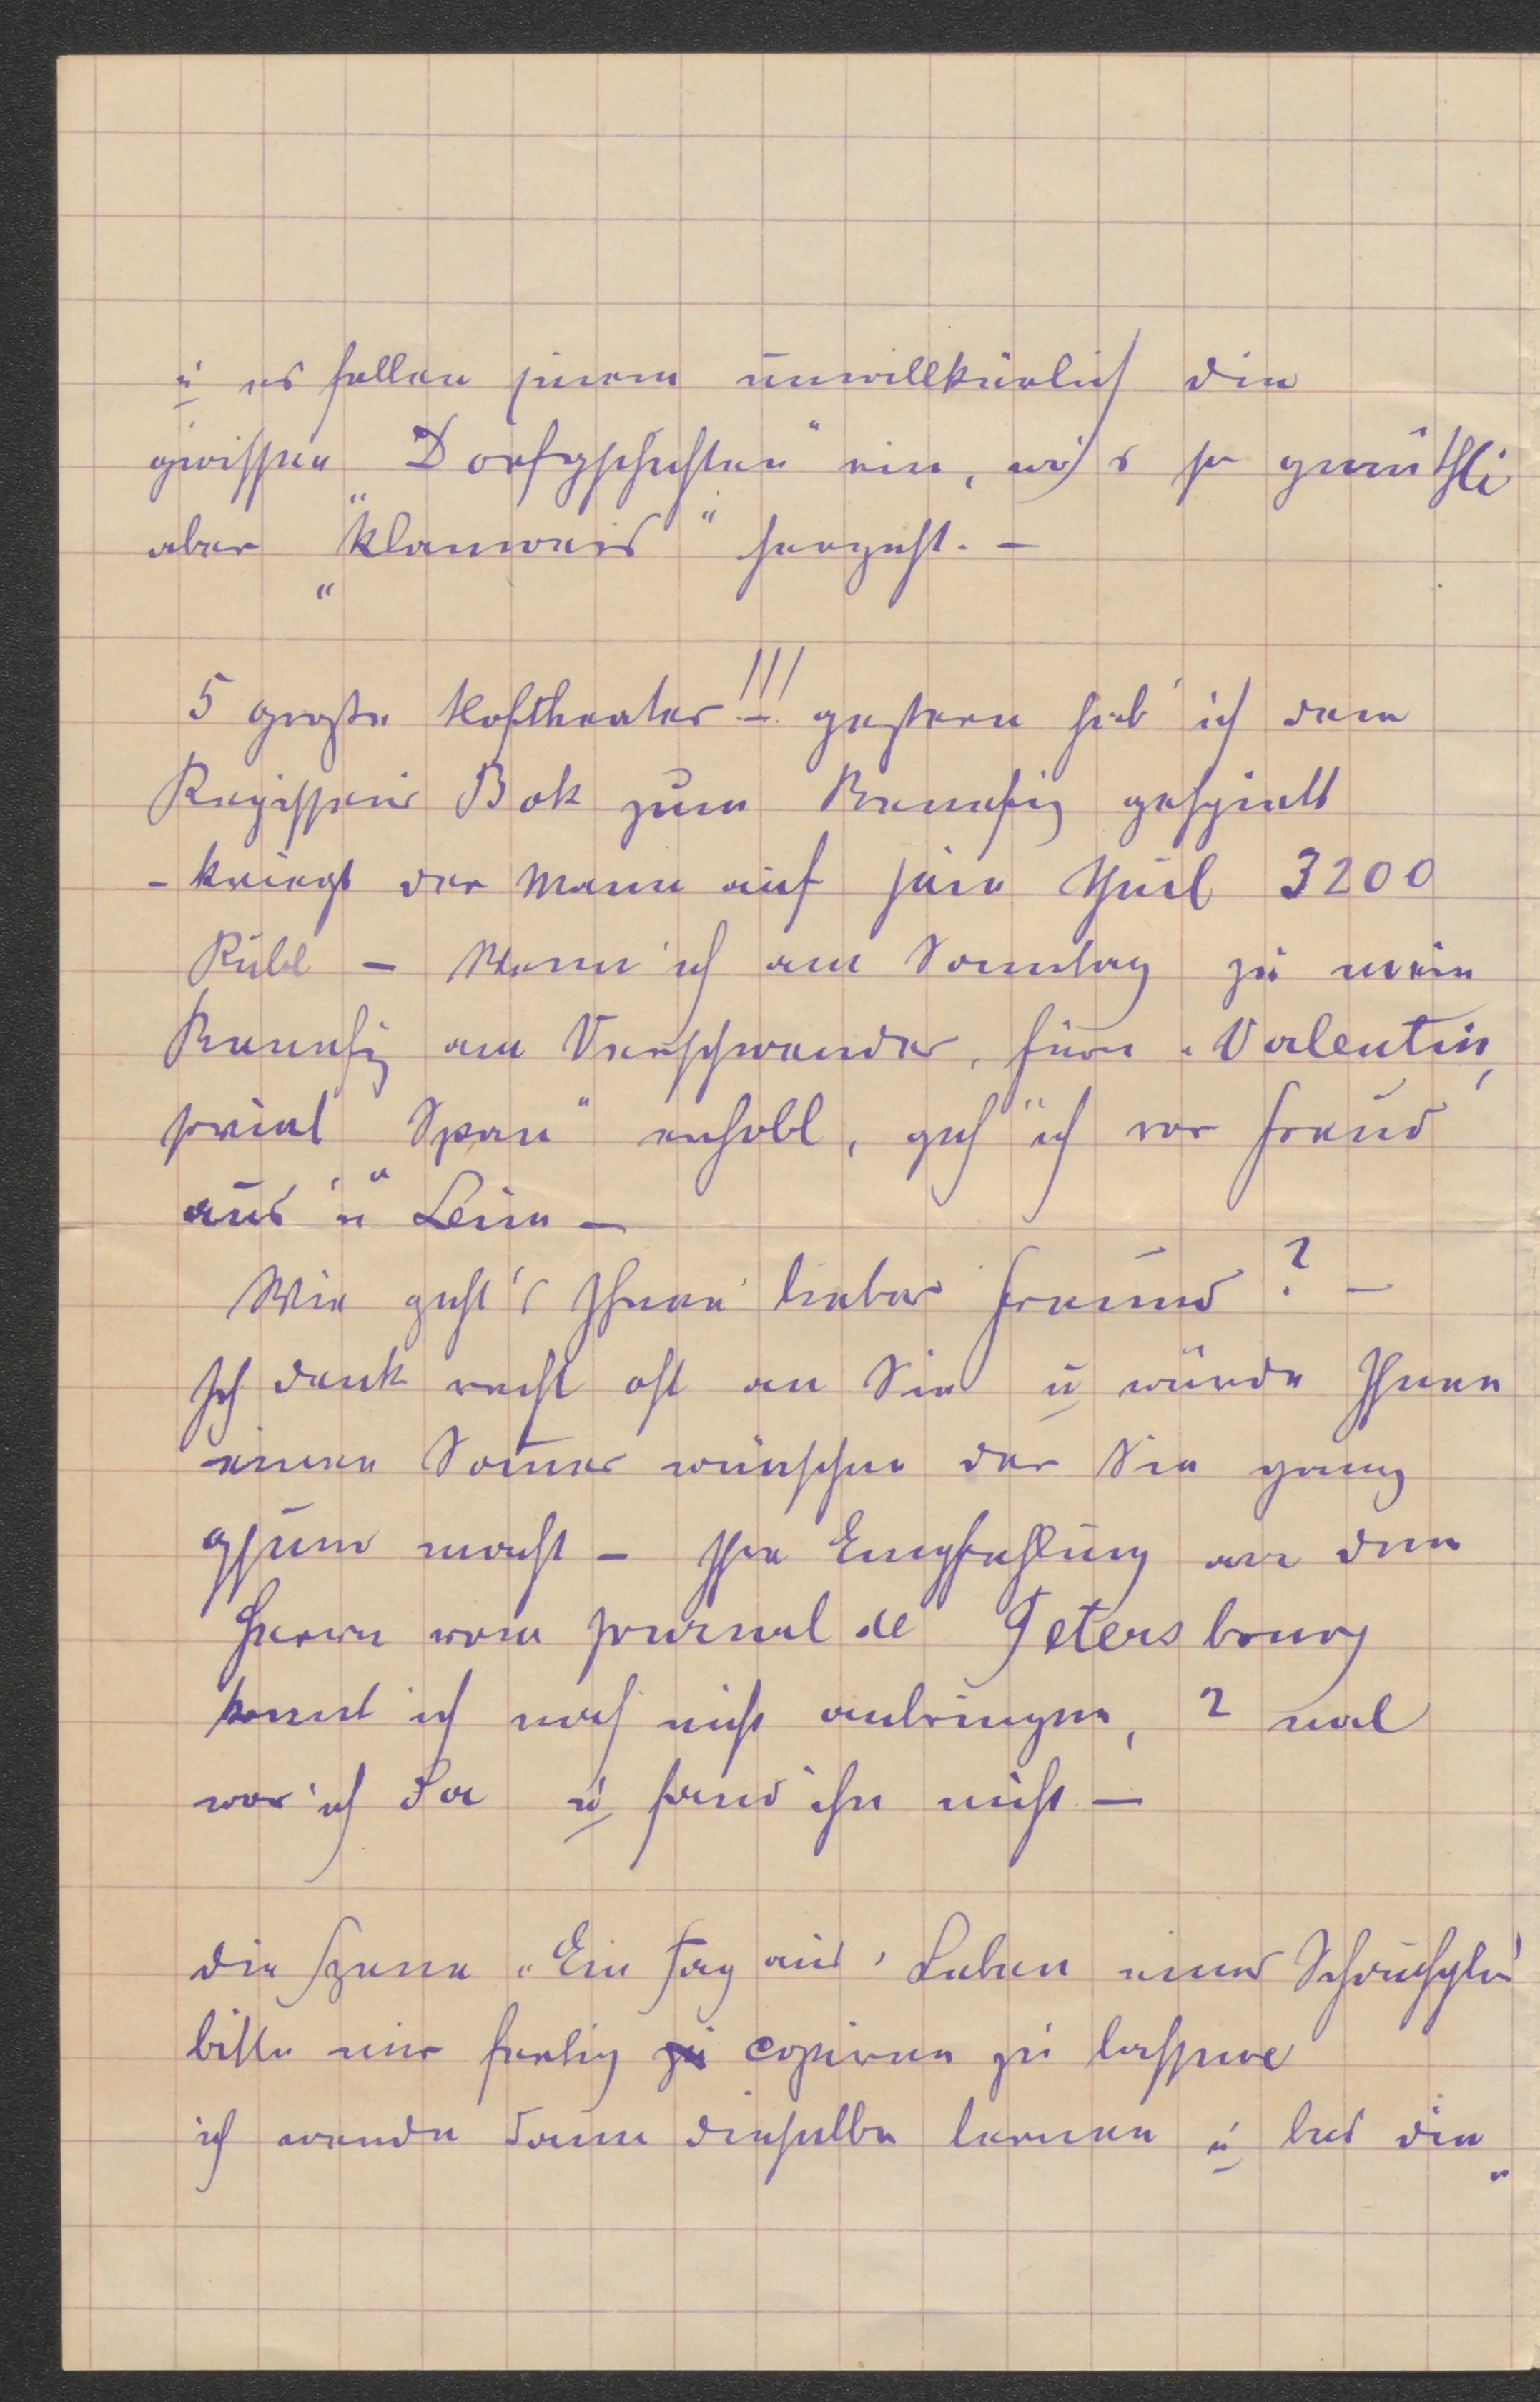 u es fallen einem unwillkürlich die
gwissen Dorfgschichten" ein, wo's so gmüthli
aber "klanweis" hergeht. –
5 große Hoftheater!!! – gestern hab' ich dem
Regisseur Bok zum Benefiz gespielt
– kriegt der Mann auf sein Theil 3200
Rubl – Wenn ich am Sonntag zu mein
Benefiz am Verschwender, fürn "Valentin,
soviel "Span" erhalt, geh' ich vor Freud
aus'n Leim –
Wie geht's Ihnen lieber Freund? –
Ich denk recht oft an Sie u würde Ihnen
einen Somer wünschen der Sie ganz
gsund macht – Ihre Empfehlung an den
Herrn vom Journal de Petersbourg
konnt ich noch nicht anbringen, 2 mal
war ich da u fand ihn nicht –
die Szene "Ein Tag aus' Leben einer
bitte mir fertig zu copieren zu lassen
ich werde dann dieselbe lernen u bis die